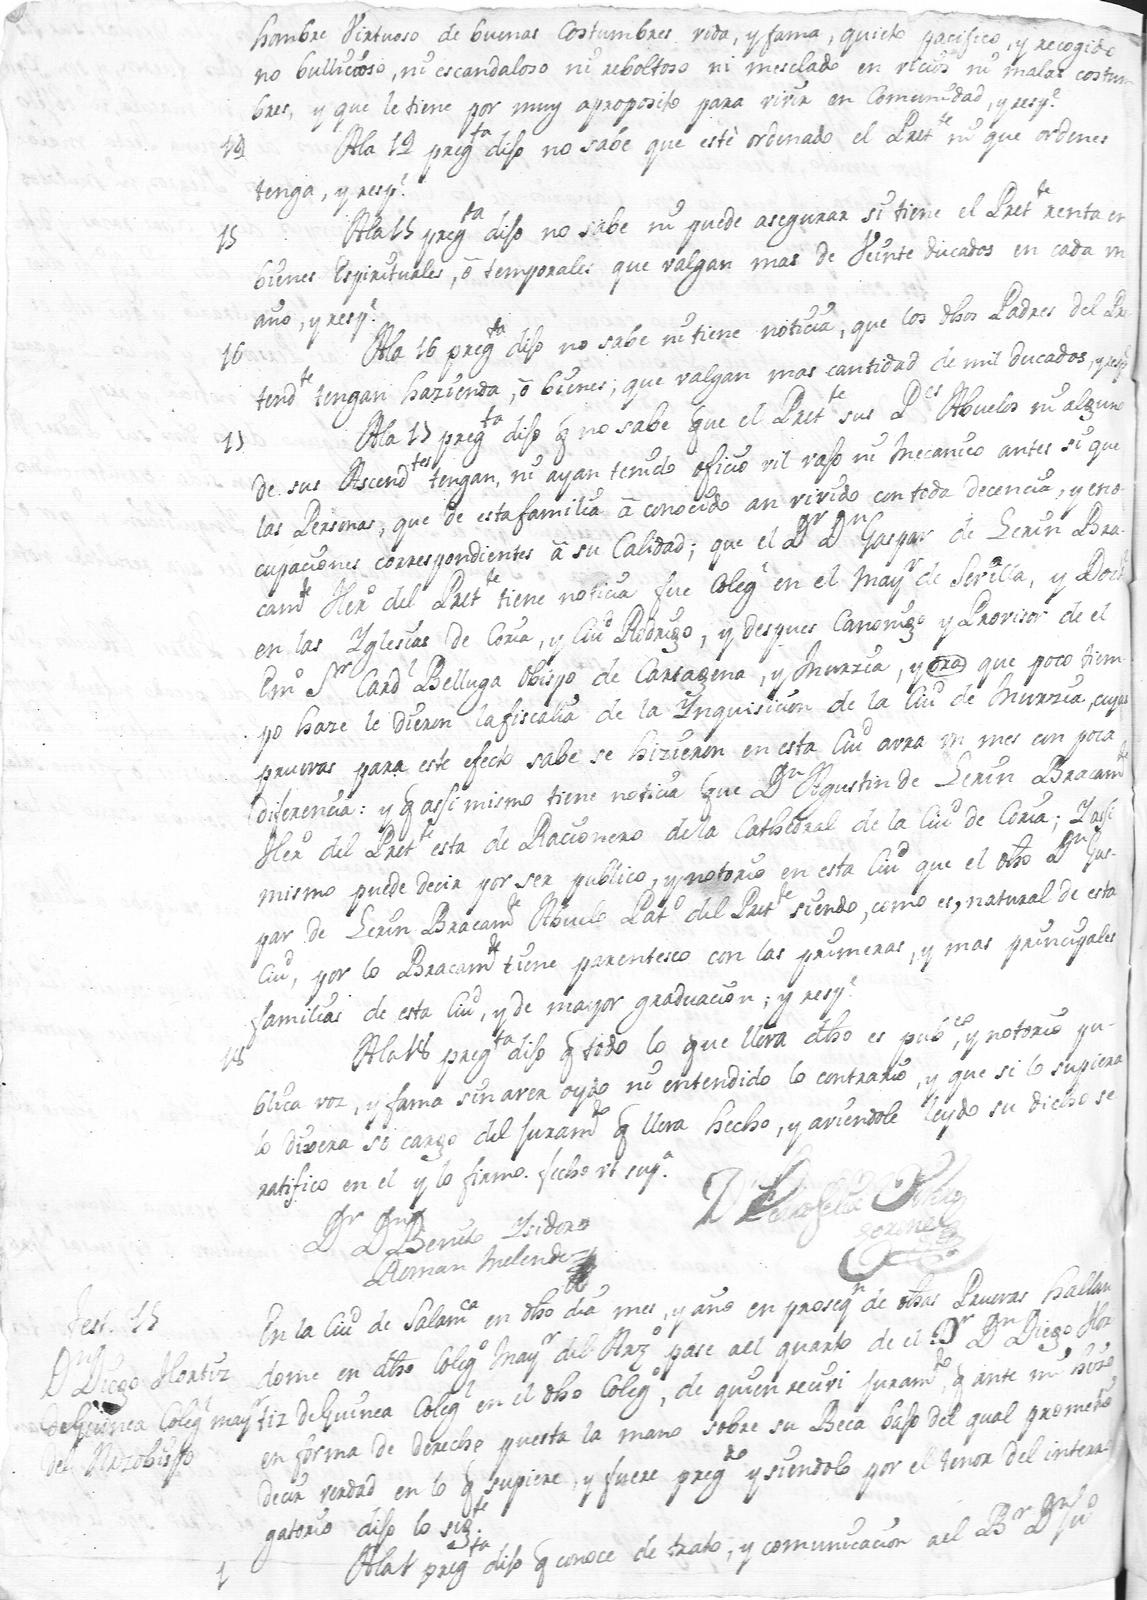 hombre Virtuoso de buenas Costumbres vida, y fama, quieto pacifico, y recogido
no bullicioso, ni escandaloso ni reboltoso ni mesclado en vicios ni malas costum
bres, y que le tiene por muy aproposito para vivir en Comunidad, y resp.e
14 Ala 14 preg.ta dijo no sabe que esté ordenado el Pret.te ni que ordenes
tenga, y resp.e
15 Ala 15 preg.ta dijo no sabe ni puede asegurar si tiene el Pret.te renta en
bienes Espirituales, ó temporales que valgan mas de Veinte ducados en cada un
año, y resp.e
16 Ala 16 preg.ta dijo no sabe ni tiene noticia, que los dhos Padres del Pre
tend.te tengan hazienda, ó bienes, que valgan mas cantidad de mil ducados, y resp.e
17 Ala 17 preg.ta dijo q no sabe que el Pret.te sus P.es Abuelos ni alguno
de sus Ascend.tes tengan, ni ayan tenido oficio vil vajo ni Mecanico antes si que
las Personas, que de esta familia á conocido an vivido con toda decencia, y en o-
cupaciones correspondientes á su Calidad; que el D.r D.n Gaspar de Lerin Bra-
cam.te Her.o del Pret.te tiene noticia fue Coleg.l en el May.r de Sevilla, y Doct.l
en las Yglesias de Coria, y Ciu.d Rodrigo, y despues Canonigo y Provisor de el
Em.o S.r Card.l Belluga Obispo de Cartagena, y Murzia, y ora que poco tiem-
po haze le dieron la fiscalia de la Ynquisicion de la Ciu.d de Murzia, cuyas
pruevas para este efecto sabe se hizieron en esta Ciu.d avra un mes con poca
diferencia: y q assi mismo tiene noticia que D.n Agustin de Lerin Bracam.te
Her.o del Pret.te esta de Racionero de la Cathedral de la Ciu.d de Coria; Y assi
mismo puede decir por ser publico, y notorio en esta Ciu.d que el dho D.n Gas-
par de Lerin Bracam.te Abuelo Pat.o del Pret.te siendo, como es, natural de esta
Ciu.d, por lo Bracam.te tiene parentesco con las primeras, y mas principales
familias de esta Ciu.d, y de mayor graduacion; y resp.e
18 Ala 18 preg.ta dijo q todo lo que lleva dho es pub.co, y notorio pu-
blica voz, y fama sin aver oydo ni entendido lo contrario, y que si lo supiera
lo dixera so cargo del juram.to q lleva hecho, y aviendole leydo su dicho se
ratifico en el y lo firmo. fecho ut sup.a
D.r D.n Benito Isidoro
Roman Melendez
Test. 15
D.n Diego Hortiz
de Guinea Coleg.l may.r
del Arzobispo
En la Ciu.d de Salam.ca en dho dia mes, y año en proseq.n de dhas Pruevas hallan
dome en dho Coleg.o May.r del Arz.o pase al quarto de el D.r D.n Diego Hor
tiz de Guinea Coleg.l en el dho Coleg.o, de quien recivi juram.to, q ante mi hizo
en forma de derecho puesta la mano sobre su Beca bajo del qual prometio
decir verdad en lo q supiere, y fuere preg.do y siendolo por el tenor del interro
gatorio dijo lo sig.te
1 Ala 1 preg.ta dijo q conoce de trato, y comunicacion al B.r D.n